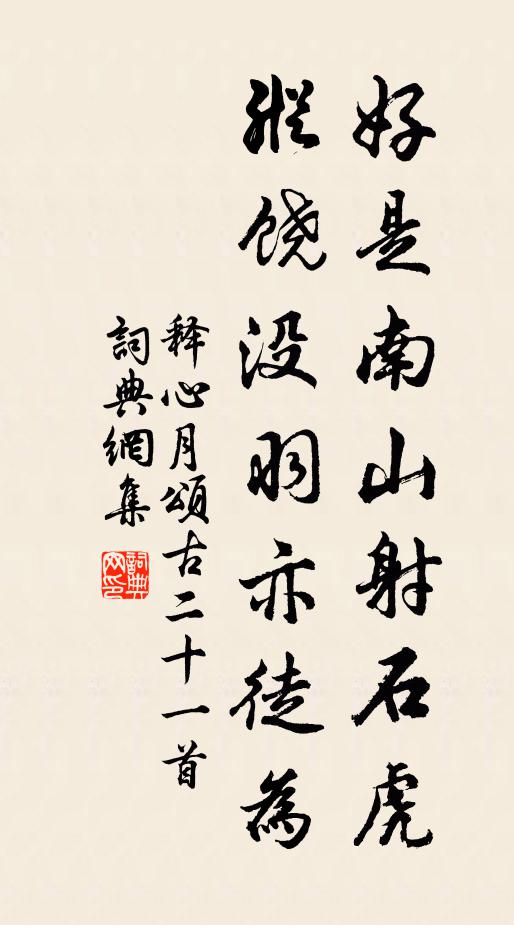 好是南山射石虎
縱饶没羽亦徒為
释心月頌古二十一首
詞典網集
詞典网印